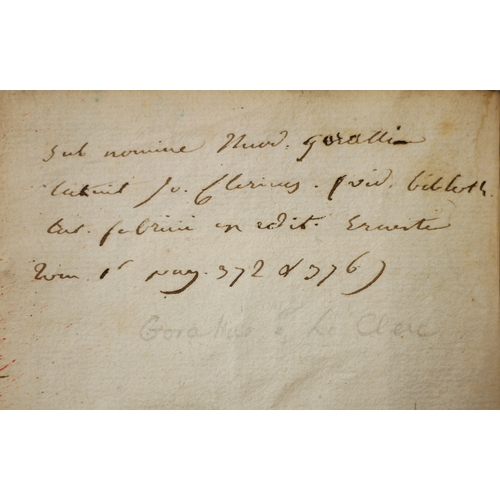 sub nomine Theod. Goralli
latuit Jo. Clericus. (vid. biblioth.
Lat. fabricii ex edit. Ernesti
tom. 1 pag. 372 & 376)
Gorallus = Le Clerc